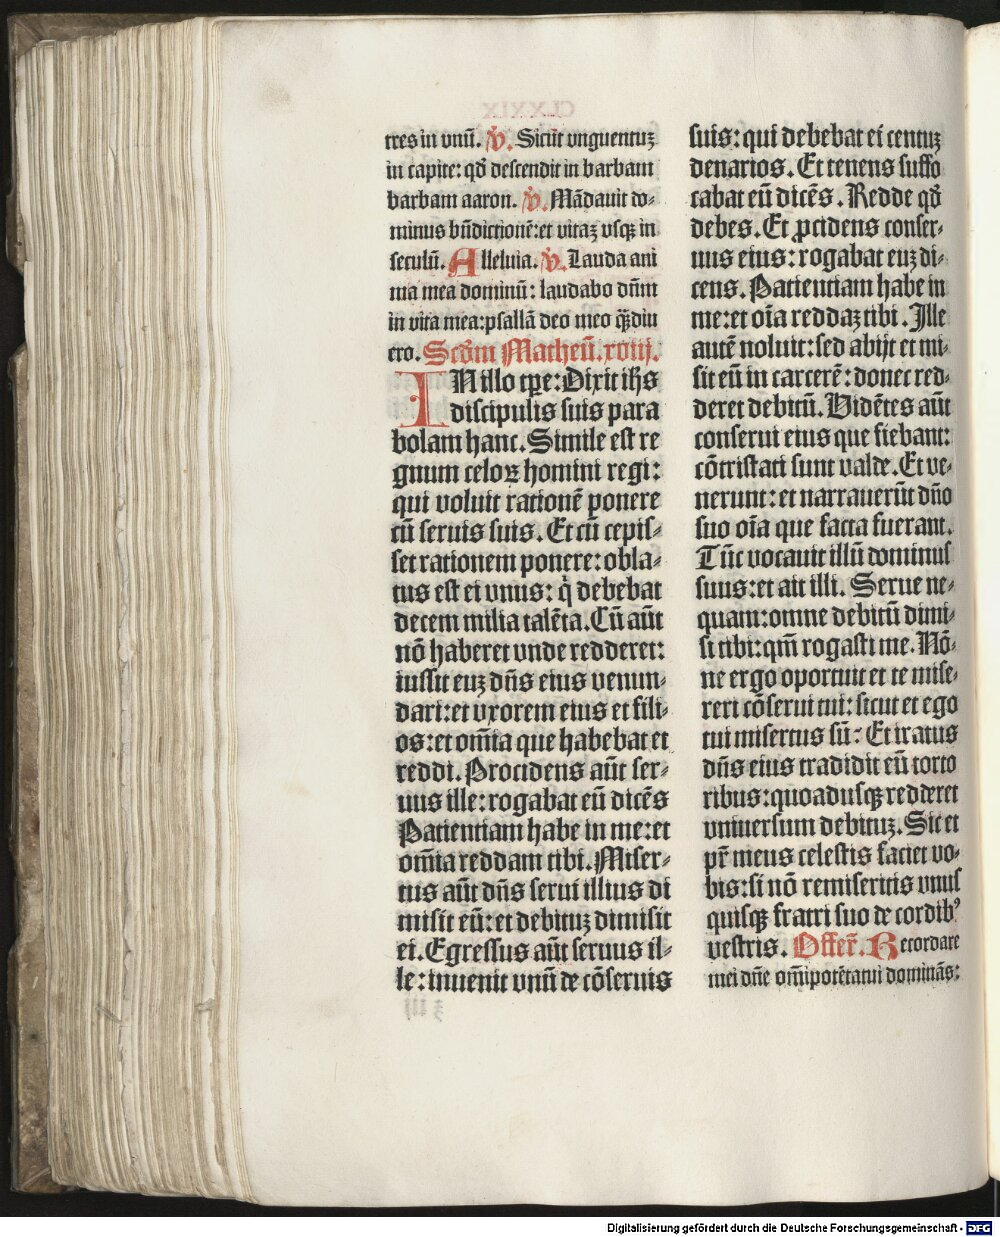 tres in vnū. ℣. Sicut vnguentuꝫ
in capite: qđ descendit in barbam
barbam aaron. ℣. Mādauit do-
minus bn̄dictionē: et vitaꝫ vsqꝫ in
seculū. Alleluia. ℣. Lauda ani
ma mea dominū: laudabo dn̄m
in vita mea: psallā deo meo qͣꝫdiu
ero. Scđm Matheū. xviij.
IN illo tꝑe: Dixit ih̄s
discipulis suis para
bolam hanc. Simile est re
gnum celoꝝ homini regi:
qui voluit rationē ponere
cū seruis suis. Et cū cepis-
set rationem ponere: obla-
tus est ei vnus: q̇ debebat
decem milia talēta. Cū aūt
nō haberet vnde redderet:
iussit euꝫ dn̄s eius venun-
dari: et vxorem eius et fili-
os: et om̄ia que habebat et
reddi. Procidens aūt ser-
uus ille: rogabat eū dicēs
Patientiam habe in me: et
om̄ia reddam tibi. Miser-
tus aūt dn̄s serui illius di
misit eū: et debituꝫ dimisit
ei. Egressus aūt seruus il-
le: inuenit vnū de cōseruis
suis: qui debebat ei centuꝫ
denarios. Et tenens suffo
cabat eū dicēs. Redde qđ
debes. Et ꝓcidens conser-
uus eius: rogabat euꝫ di-
cens. Patientiam habe in
me: et oīa reddaꝫ tibi. Ille
autē noluit: sed abijt et mi-
sit eū in carcerē: donec red-
deret debitū. Vidētes aūt
conserui eius que fiebant:
cōtristati sunt valde. Et ve-
nerunt: et narrauerūt dn̄o
suo oīa que facta fuerant.
Tūc vocauit illū dominus
suus: et ait illi. Serue ne-
quam: omne debitū dimi-
si tibi: qm̄ rogasti me. Nō-
ne ergo oportuit et te mise-
reri cōserui tui: sicut et ego
tui misertus sū: Et iratus
dn̄s eius tradidit eū torto
ribus: quoadusqꝫ redderet
vniuersum debituꝫ. Sic et
pr̄ meus celestis faciet vo-
bis: si nō remiseritis vnus
quisqꝫ fratri suo de cordibꝰ
vestris. Offer̄. Recordare
mei dn̄e om̄ipotētatui dominās:
Digitalisierung gefördert durch die Deutsche Forschungsgemeinschaft - DFG